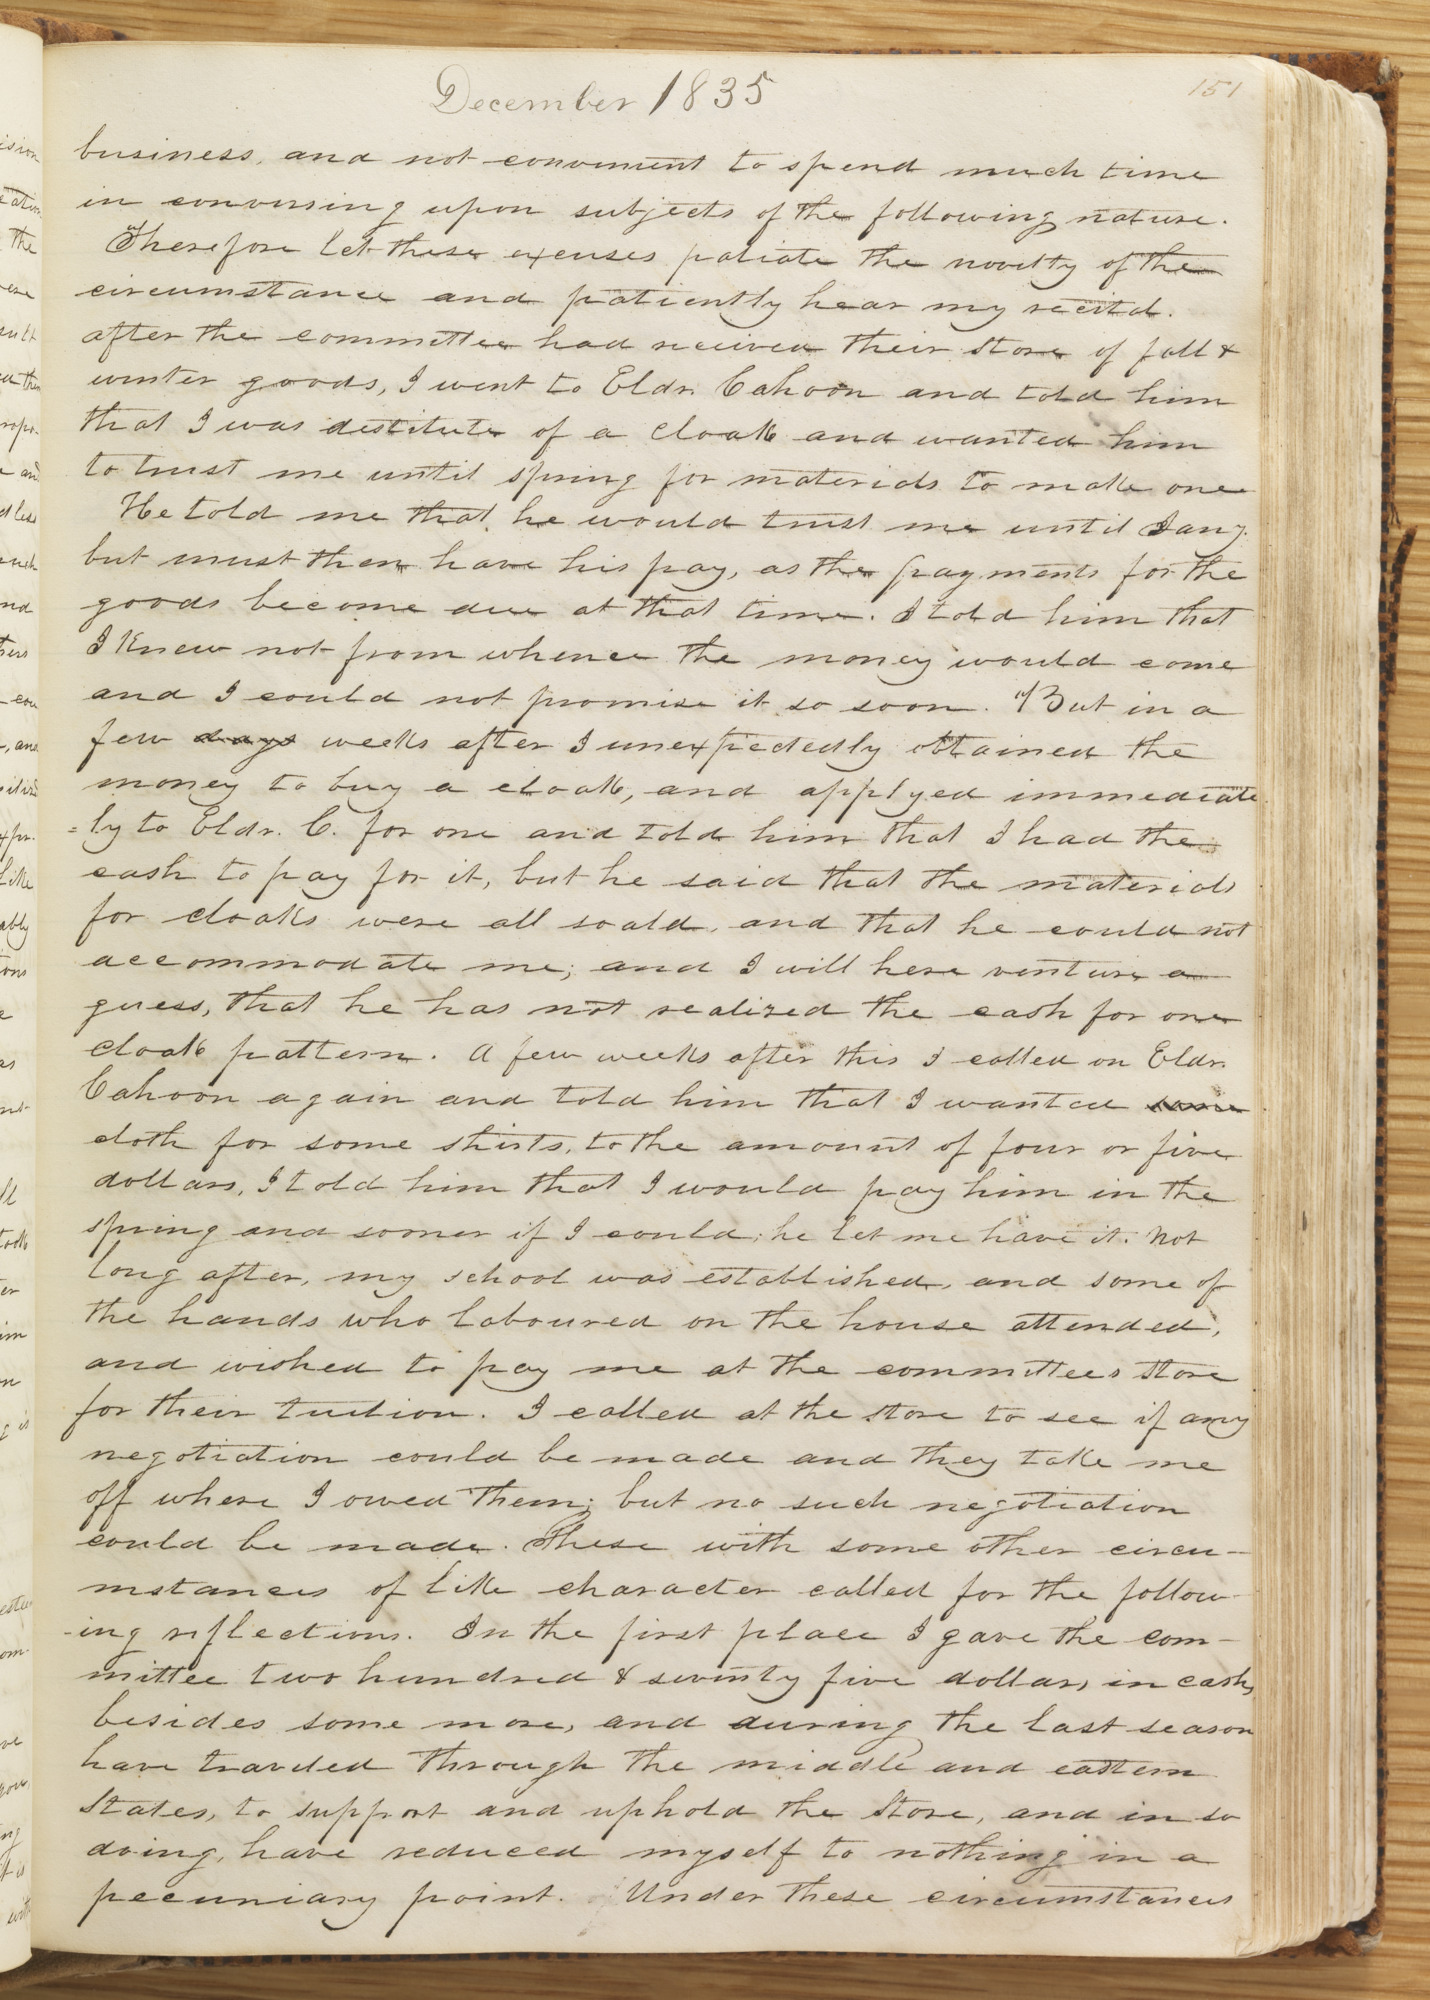 December 1835
151
business, and not convenient to spend much time
in conversing upon subjects of the following nature.
Therefore let these excuses paliate the novelty of the
circumstance and patiently hear my recital.
after the committee had received their store of fall &
winter goods, I went to Eldr. Cahoon and told him
that I was destitute of a cloak and wanted him
to trust me until spring for materials to make one
He told me that he would trust me until Jany.
but must then have his pay, as the payments for the
goods become due at that time. I told him that
I knew not from whence the money would come
and I could not promise it so soon. But in a
few days weeks after I unexpectedly obtained the
money to buy a cloak, and applyed immediate
=ly to Eldr. C. for one and told him that I had the
cash to pay for it, but he said that the materials
for cloaks were all soald, and that he could not
accommodate me; and I will here venture a
guess, that he has not realized the cash for one
cloak pattern. A few weeks after this I called on Eldr.
Cahoon again and told him that I wanted some
cloth for some shirts, to the amount of four or five
dollars, I told him that I would pay him in the
spring and sooner if I could; he let me have it. Not
long after, my school was established, and some of
the hands who laboured on the house attended,
and wished to pay me at the committees store
for their tuition. I called at the store to see if any
negotiation could be made and they take me
off where I owed them; but no such negotiation
could be made. These with some other circu-
mstances of like character called for the follow-
-ing reflections. In the first place I gave the com-
mittee two hundred & seventy five dollars in cash,
besides some more, and during the last season
have traveled through the middle and eastern
States, to support and uphold the Store, and in so
doing, have reduced myself to nothing in a
pecuniary point. Under these circumstances